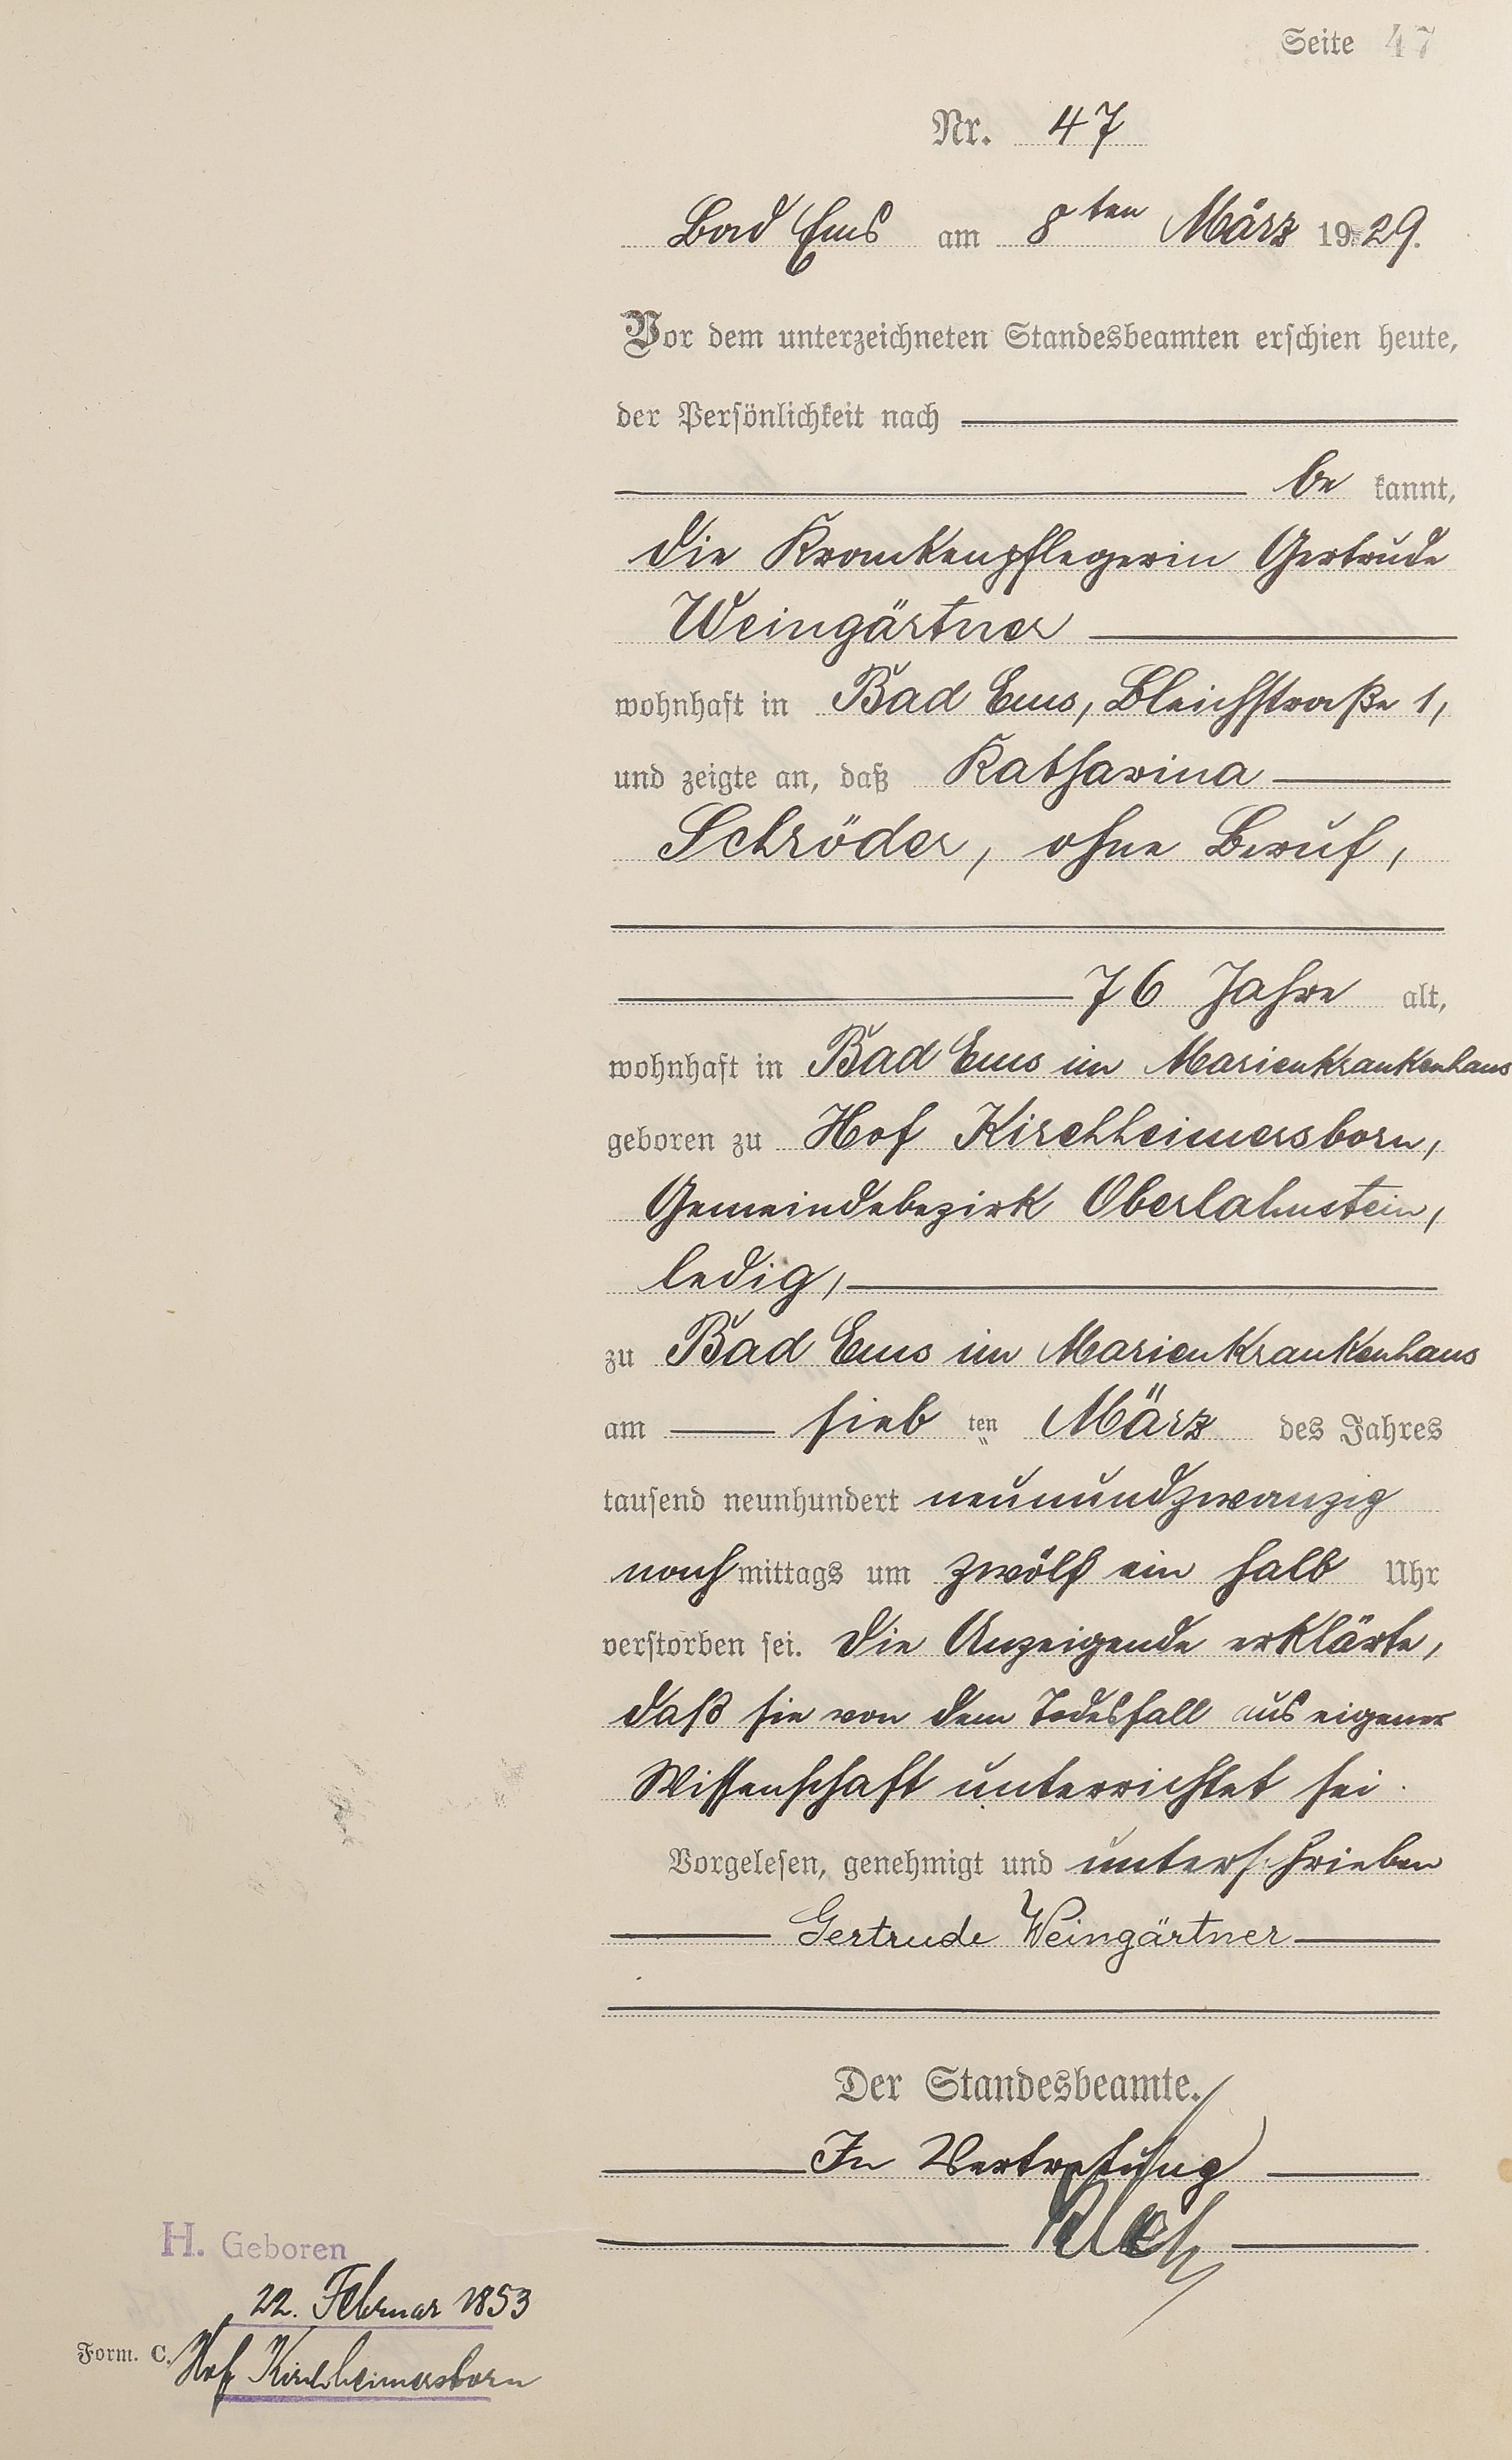 Seite 47
Nr. 47
Bad Ems am 8ten März 1929.
Vor dem unterzeichneten Standesbeamten erschien heute,
der Persönlichkeit nach
be kannt,
die Krankenpflegerin Gertrude
Weingärtner
wohnhaft in Bad Ems, Bleichstraße 1,
und zeigte an, daß Katharina
Schröder, ohne Beruf,
76 Jahre alt,
wohnhaft in Bad Ems im Marienkrankenhaus
geboren zu Hof Kirchheimersborn,
Gemeindebezirk Oberlahnstein,
ledig,
zu Bad Ems im Marienkrankenhaus
am sieb ten März des Jahres
tausend neunhundert neunundzwanzig
nachmittags um zwölf ein halb Uhr
verstorben sei. Die Anzeigende erklärte,
daß sie von dem Todesfall aus eigener
Wissenschaft unterrichtet sei.
Vorgelesen, genehmigt und unterschrieben
Gertrude Weingärtner
Der Standesbeamte.
In Vertretung
H. Geboren
22. Februar 1853
Form. C. Hof Kirchheimersborn